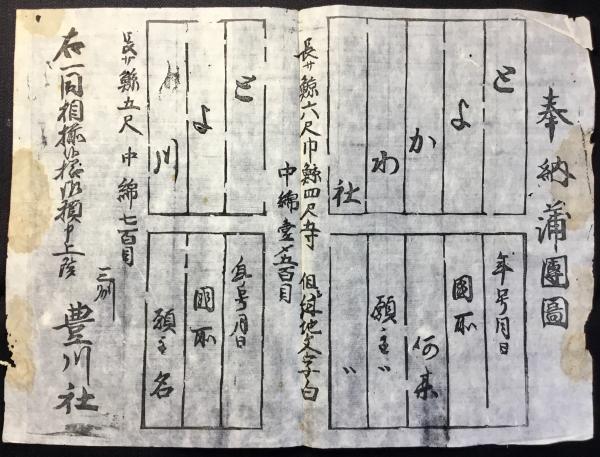 奉納蒲團圖
と
よ
か
わ
社
年号月日
國所
何来
願主〃
〃
長サ鯨六尺巾鯨四尺五寸 但緑地文字白
中綿壱〆五百目
と
よ
川
年号月日
國所
願主名
長サ鯨五尺 中綿七百目
右一同相揃候様御願申上候
三州
豊川社